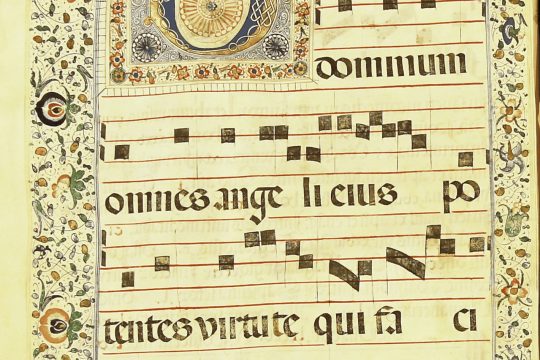 dominum
omnes ange li eius po
tentes virtute qui fa ci